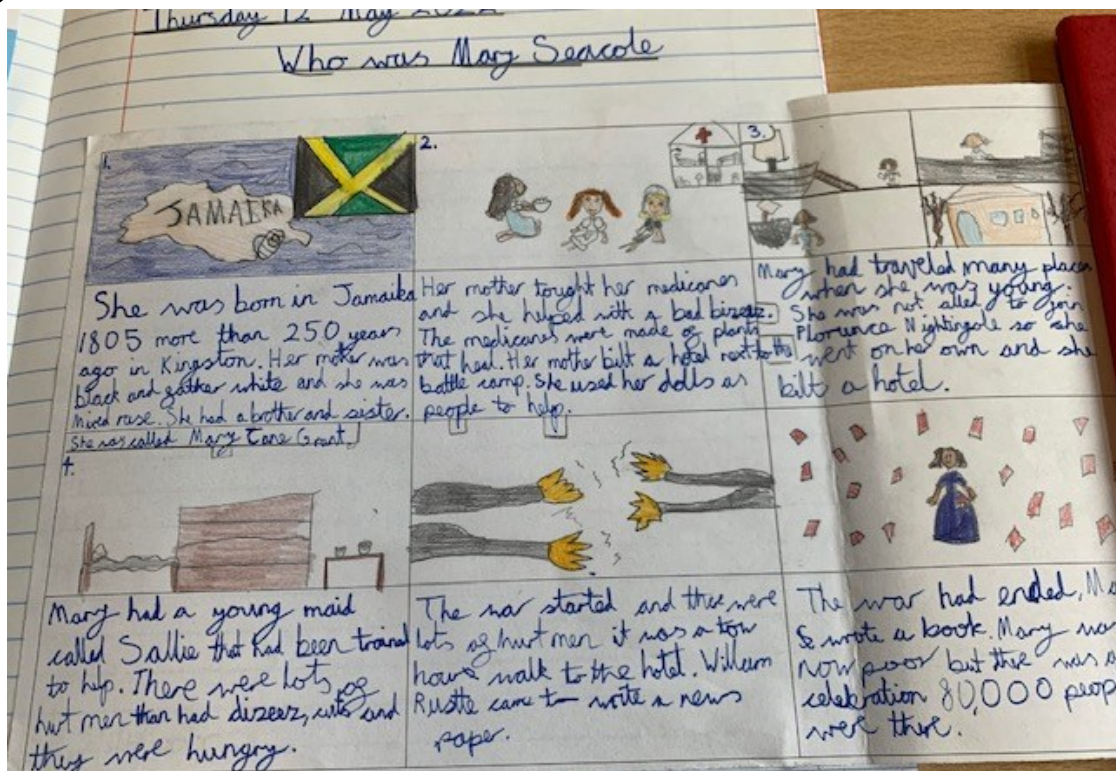 Thursday 12 May 2022
Who was Mary Seacole
1.
JAMAIKA
She was born in Jamaika
1805 more than 250 years
ago in Kingston. Her mother was
black and father white and she was
Mixed rase. She had a brother and sister.
She was called Mary Jane Grant.
2.
Her mother tought her medicanes
and she helped with a bad bizeez.
The medicanes were made of plants
that heal. Her mother bilt a hotel next to the
battle camp. She used her dolls as
people to help.
3.
Mary had traveled many places
when she was young.
She was not alled to join
Florence Nightingale so she
went on her own and she
bilt a hotel.
4.
Mary had a young maid
called Sallie that had been trained
to help. There were lots of
hurt men than had dizeez, cuts and
they were hungry.
The war started and there were
lots of hurt men it was a tow
hours walk to the hotel. William
Rustle came to write a news
paper.
The war had ended, M
S wrote a book. Mary was
now poor but there was a
celebration 80,000 peop
were there.